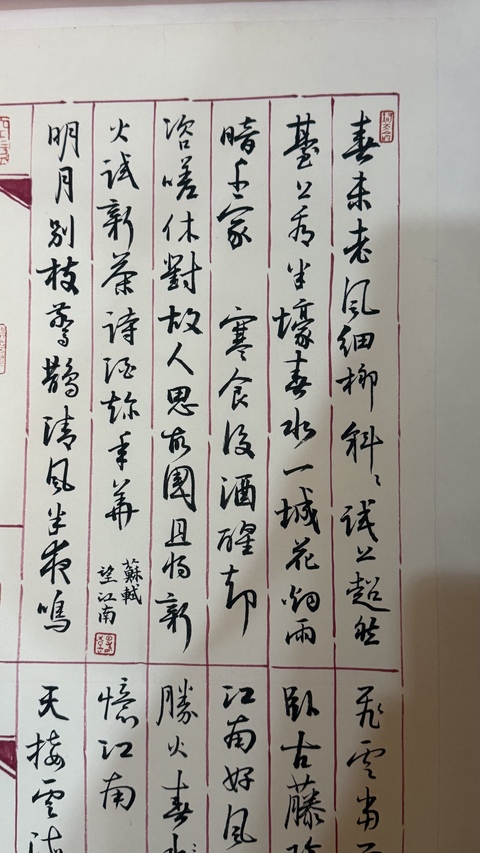 春未老風細柳斜〻試上超然
臺上看半壕春水一城花烟雨
暗千家 寒食後酒醒却
咨嗟休對故人思故國且将新
火試新茶詩酒趁年華
蘇軾
望江南
明月別枝驚鵲清風半夜鳴
飛雲當
卧古藤陰
江南好風
勝火春水
憶江南
天接雲濤